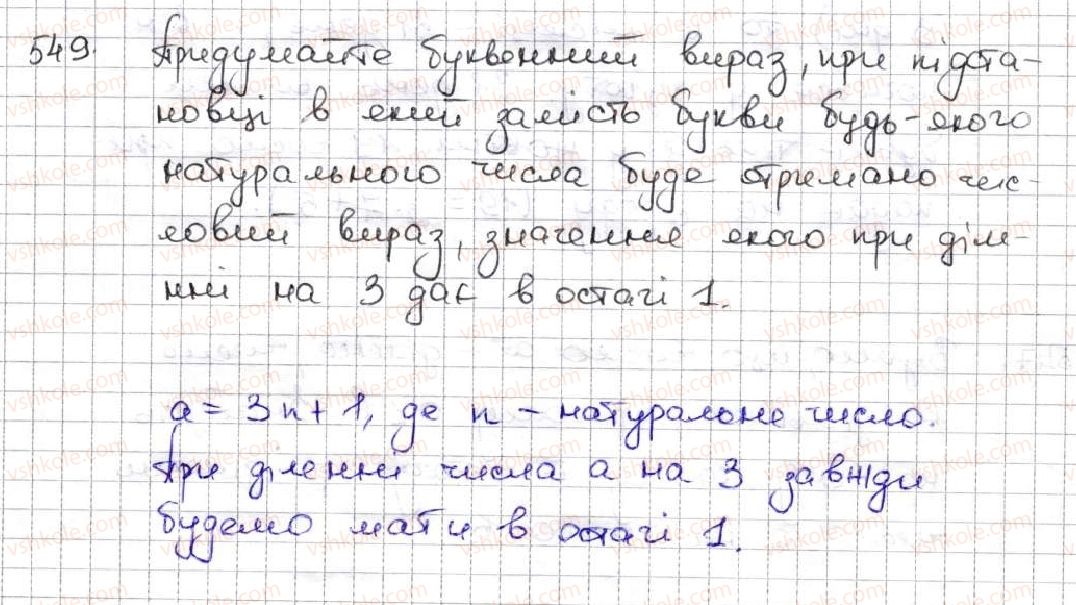 549. Придумайте буквенний вираз, при підста-
новці в який замість букви будь-якого
натурального числа буде отримано чис-
ловий вираз, значення якого при діле-
нні на 3 дає в остачі 1.
a = 3n + 1, де n - натуральне число.
При діленні числа a на 3 завжди
будемо мати в остачі 1.